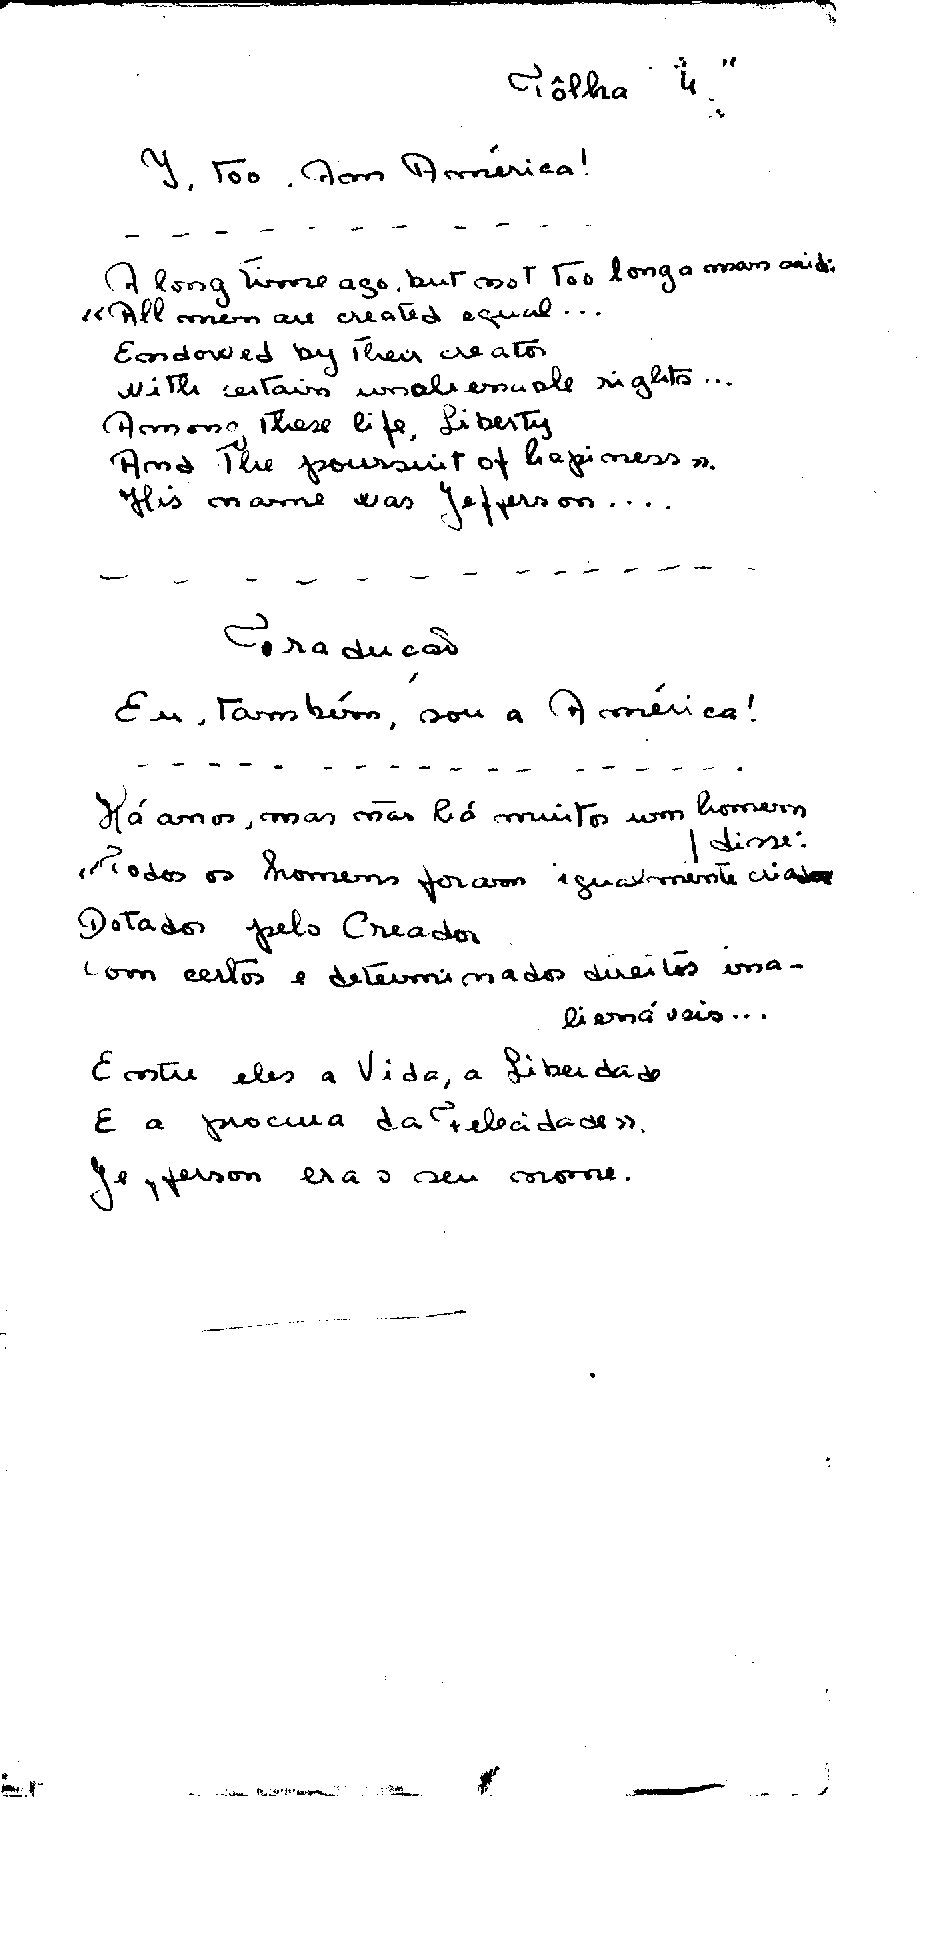 Fôlha "4"
Y, too, Am América!
A long time ago, but not too long a man said:
«All men are created equal...
Endowed by their creator
With certain unalienuale rights...
Among these life, Liberty
And The poursuit of hapiness».
His name was Jefferson....
Traducão
Eu, também, sou a América!
Há anos, mas não há muitos um homem
disse:
«Todos os homens foram igualmente criados
Dotados pelo Creador
Com certos e determinados direitos ina-
lienáveis...
Entre eles a Vida, a Liberdade
E a procura da Felecidade».
Jefferson era o seu nome.